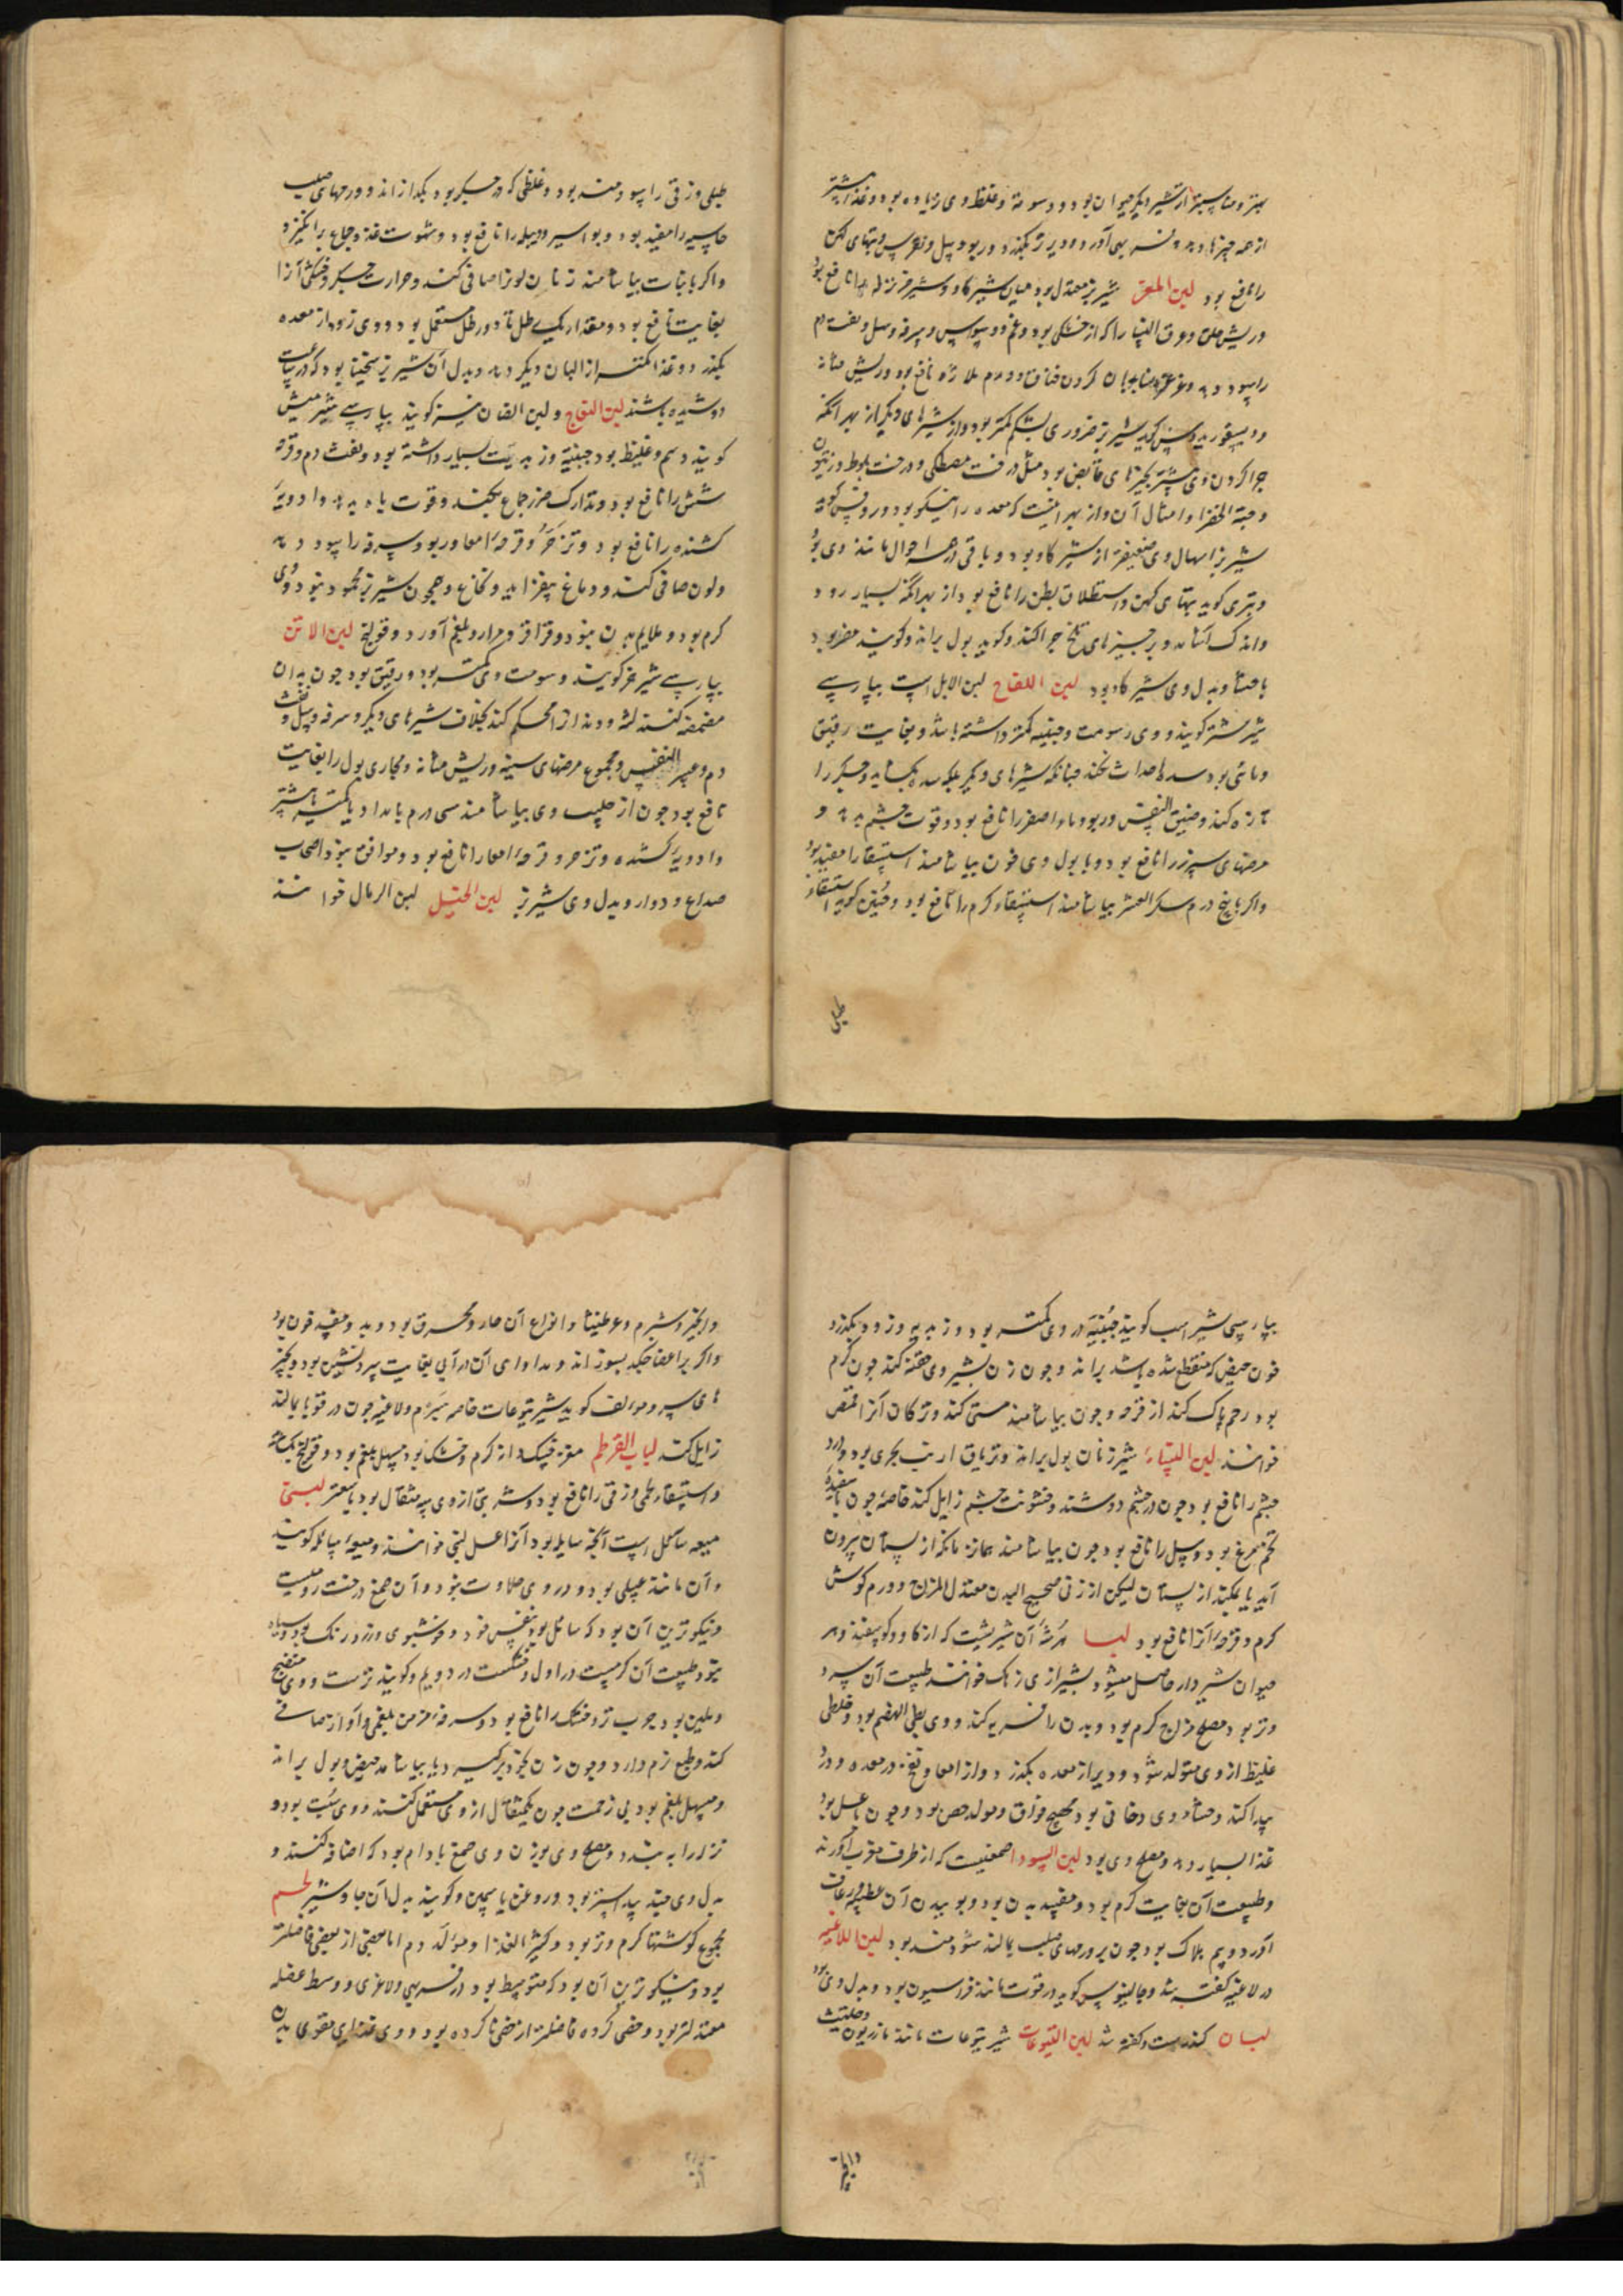 بهتر و مناسبتر از شیر دیگر حیوان بود و دسومة و غلظ وی زیاده بود و غذا بیشتر
از همه چیزها دهد و فربهی آورد و دیرتر بگذرد و ربو و سل و نقرس و تبهای کهن
را نافع بود لبن المعز شیر بز معتدل بود میان شیر گاو و شیر خر نزله را نافع بود
و ریش حلق و عرق النسا را که از خشکی بود و غم و وسواس و سرفه و سل و نفث دم
را سود دهد و غرغره و بدان کردن خناق و ورم ملازه نافع بود و ریش مثانه
و دیسقوریدوس گوید شیر بز ضرر وی بشکم کمتر بود از شیرهای دیگر از بهر آنکه
چرا کردن وی بیشتر بچیزهای قابض بود مثل درخت مصطکی و درخت بلوط و زیتون
و حبة الخضرا و امثال آن و از بهر اینست که معده را نیکو بود و روفس گوید
شیر بز اسهال وی ضعیفتر از شیر گاو بود و باقی در همه احوال مانند وی بود
و تبری گوید تبهای کهن و استطلاق بطن را نافع بود از بهر آنکه بسیار رود
و اندک آشامد و بر چیزهای تلخ چرا کند و گوید بول براند و گویند مضر بود
باحشا و بدل وی شیر گاو بود لبن اللقاح لبن الابل است بپارسی
شیر شتر گویند و وی دسومت و جبنیه کمتر داشته باشد و بغایت رقیق
و مائی بود سده احداث نکند چنانکه شیرهای دیگر بلکه سده بگشاید و جگر را
تازه کند و ضیق النفس و ربو و ماء اصفر را نافع بود و قوت جشم دهد و
مرضهای سپرز را نافع بود و با بول وی چون بیاشامند استسقا را مفید بود
و اگر با پنج درم سکر العشر بیاشامند استسقاء گرم را نافع بود و حنین گوید استسقاء
طبلی
طبلی و زقی را سودمند بود و غلظی که در جگر بود بگدازاند و ورمهای صلب
جاسیه را مفید بود و بواسیر و دبیله را نافع بود و شهوت غذ و جماع برانگیزد
و اگر با نبات بیاشامند زنان لونرا صافی کند و حرارت جگر و خشکی آنرا
بغایت نافع بود و مقدار یک رطل تا دو رطل مستعمل بود و وی زود از معده
بگذرد و غذا کمتر از البان دیگر دهد و بدل آن شیر بز بود که در ساعت
دوشیده باشند لبن النعاج و لبن الضان نیز گویند بپارسی شیر میش
گویند دسم و غلیظ بود جبنیة و زبدیت بسیار داشته بود و نفث دم و قرحه
شش را نافع بود و تدارک ضرر جماع بکند و قوت باه بدهد و ادویه
کشنده را نافع بود و تزحر و قرحه امعا و ربو و سرفه را سود دهد
ولون صافی کند و دماغ بیفزاید و نخاع و همچون شیر بز محمود نبود و وی
گرم بود و ملایم بدن نبود و قراقر و مرار و بلغم آورد و قولنج لبن الاتن
بپارسی شیر خر گویند دسومت وی کمتر بود و رقیق بود چون بدان
مضمضه کنند لثه و دندانرا محکم کند بخلاف شیرهای دیگر و سرفه و سل و نفث
دم و عسر النفس و مجموع مرضهای سینه و ریش مثانه و مجاری بول را بغایت
نافع بود چون از حلیب وی بیاشامند سی درم بامداد یا کمتر یا بیشتر
و ادویه کشنده و تزحر و قرحه امعا را نافع بود و موافق نبود اصحاب
صداع و دوار و بدل وی شیر بز لبن الخیل لبن الرمال خوانند
بپارسی شیر اسب گویند جبنیة در وی کمتر بود و زبدیه و زود بگذرد
خون حیض که منقطع شده باشد براند و چون زن بشیر وی حقنه کند چون گرم
بود رحم پاک کند از قرحه و چون بیاشامند مستی کند و ترکان آنرا قمض
خوانند لبن النساء شیر زنان بول براند و تریاق ارنب بحری بود و درد
جشم را نافع بود چون در جشم دوشند و خشونت جشم زایل کند خاصه چون با سفیده
تخم مرغ بود و سل را نافع بود چون بیاشامند همان زمانکه از پستان بیرون
آید یا بمکند از پستان لیکن از زنی صحیح البدن معتدل المزاج و ورم گوش
گرم و قرحه آنرا نافع بود لبا آن شیریست که از گاو و گوسفند و هر
حیوان شیردار حاصل میشود بشیرازی زهک خوانند طبیعت آن سرد
و تر بود مصلح مزاج گرم بود و بدن را فربه کند و وی بطی الهضم بود و خلطی
غلیظ از وی متولد شود و دیر از معده بگذرد و از امعا و نفخ در معده و درد
پیدا کند و جشاء وی دخانی بود مهیج فواق و مولد حصی بود و چون با عسل بود
غذا بسیار دهد و مصلح وی بود لبن السودا صمغیست که از طرف مغرب آورند
و طبیعت آن بغایت گرم بود و مفسد بدن بود و بوییدن آن عطسه و رعاف
آورد و بیم هلاک بود چون بر ورمهای صلب بمالند سودمند بود لبن اللاغیه
در لاغیه گفته شد و جالینوس گوید در قوت مانند فراسیون بود و بدل وی بود
لبان کندرست و گفته شد لبن الیتوعات شیر یتوعات مانند مازریون و حلتیث
و انجیر و شبرم و عرطنیثا و انواع آن حار و محرق بود و بد و مفسد خون بود
و اگر بر اعضا چکد بسوزاند و مداوای آن در آبی بغایت سرد نشستن بود و بچیز
های سرد و مولف گوید شیر یتوعات خاصه شبرم و لاغیه چون در قوبا بمالند
زایل کند لباب القرطم مغز خسک دانه گرم و خشک بود مسهل بلغم بود و قولنج بگشاید
و استسقاء لحمی و زقی را نافع بود و شربتی از وی سه مثقال بود با سعتر لبنی
میعه سائل است آنچه سایله بود آنرا عسل لبنی خوانند و میعه سائله گویند
و آن مانند عسلی بود و در وی حلاوت نبود و آن صمغ درخت رومیست
و نیکوترین آن بود که سائل بود بنفس خود و خوشبوی و زرد رنگ بود و سیاه
نبود طبیعت آن گرمست در اول و خشکست در دویم و گویند ترست و وی منضج
و ملین بود جرب تر و خشک را نافع بود و سرفه مزمن بلغمی و آواز صافی
کند و طبع نرم دارد و چون زن بخود برگیرد یا بیاشامد حیض و بول براند
و مسهل بلغم بود بی زحمت چون یکمثقال از وی مستعمل کنند و وی سبت بود و
نزله را ببندد و مصلح وی بوزن وی صمغ بادام بود که اضافه کنند و
بدل وی جند بیدستر بود و روغن یاسمین و گویند بدل آن جاوشیر لحم
مجموع گوشتها گرم و تر بود و کثیر الغذا و مولد دم اما بعضی از بعضی فاضلتر
بود و نیکوترین آن بود که متوسط بود در فربهی و لاغری و وسط عضله
معتدلتر بود و خصی کرده فاضلتر از خصی ناکرده بود و وی غذای مقوی بدن